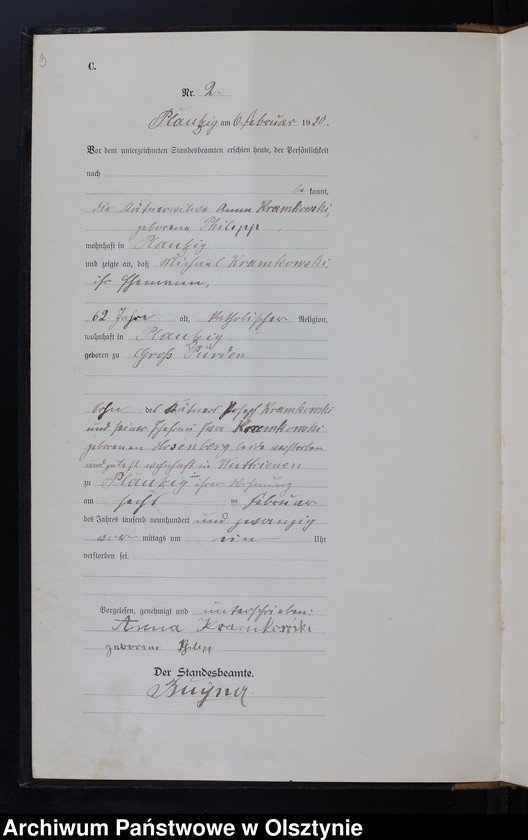 C.
Nr. 2.
Plautzig am 6. Februar 1920.
Vor dem unterzeichneten Standesbeamten erschien heute, der Persönlichkeit
nach
be kannt,
die Kätnerwitwe Anna Kramkowski,
geborene Philipp,
wohnhaft in Plautzig
und zeigte an, daß Michael Kramkowski,
ihr Ehemann,
62 Jahre alt, katholischer Religion,
wohnhaft in Plautzig
geboren zu Groß Purden
Sohn des Kätners Joseph Kramkowski
und seiner Ehefrau Kramkowski
geborenen Rosenberg beide verstorben
und zuletzt wohnhaft in Wuttrienen
zu Plautzig in ihrer Wohnung
am sechs ten Februar
des Jahres tausend neunhundert und zwanzig
vor mittags um ein Uhr
verstorben sei.
Vorgelesen, genehmigt und unterschrieben:
Anna Kramkowski
geborene Philipp
Der Standesbeamte.
Archiwum Państwowe w Olsztynie